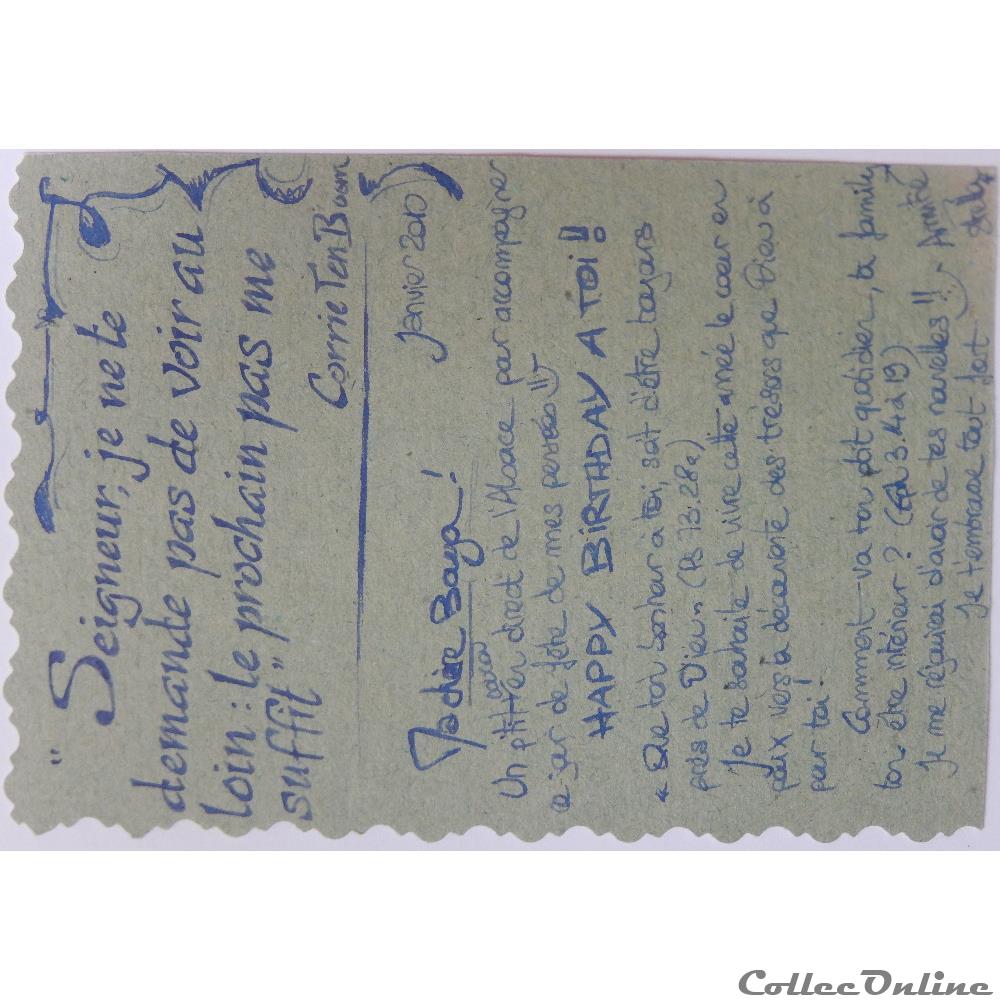 " Seigneur, je ne te
demande pas de voir au
loin : le prochain pas me
suffit "
Corrie Ten Boom
Janvier 2010
Ma chère Baya !
Un ptit coucou direct de l'Alsace pour accompagner
ce jour de fête de mes pensées
HAPPY BIRTHDAY A TOI !!
« Que ton bonheur à toi, soit d'être toujours
près de Dieu » (Ps 73.28a)
Je te souhaite de vivre cette année le coeur en
paix vers la découverte des trésors que Dieu a
pour toi !
Comment va ton ptit quotidien, ta family
ton être intérieur ? (3.14 à 19)
Je me réjouirai d'avoir de tes nouvelles !! Amitié
je t'embrasse tout fort
CollecOnline